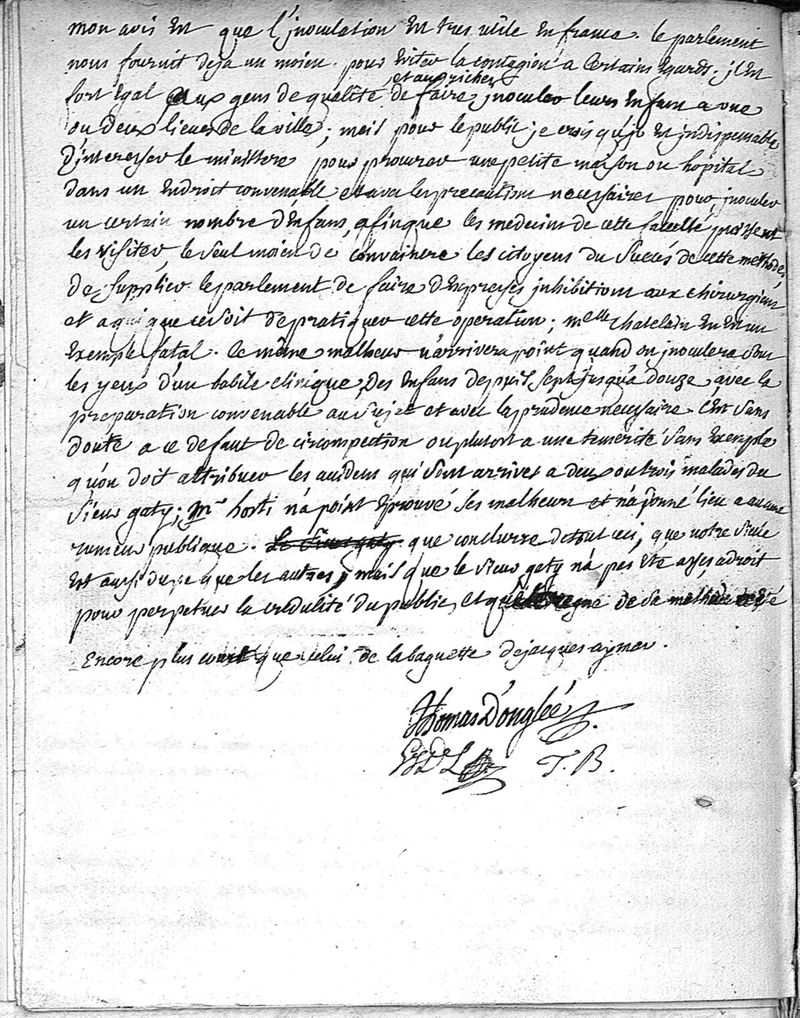 mon avis est que l'inoculation est tres utile en france. le parlement
nous fournit deja un moien pour eviter la contagion a certains egards; il est
et aux riches
fort egal aux gens de qualité de faire inoculer leurs enfans a une
ou deux lieues de la ville; mais pour le public je crois qu'il est indispensable
d'interesser le ministere pour procurer une petite maison ou hopital
dans un endroit convenable et avec les precautions necessaires pour inoculer
un certain nombre d'enfans, afin que les medecins de cette faculté puissent
les visiter le seul moien de convaincre les citoyens du succés de cette methode,
de supplier le parlement de faire d'expresses inhibitions aux chirurgiens
et a qui que ce soit de pratiquer cette operation; melle chatelain en est un
exemple fatal. ce même malheur n'arrivera point quand on inoculera sous
les yeux d'un habile clinique, des enfans depuis sept jusqu'a douze avec la
preparation convenable au sujet et avec la prudence necessaire c'est sans
doute a ce defaut de circonspection ou plutost a une temerité sans exemple
qu'on doit attribuer les accidens qui sont arrivés a deux ou trois malades du
sieur gaty; Mr hosti n'a point éprouvé ses malheurs et n'a donné lieu a aucune
rumeur publique. Le Sieur gaty que conclurre de tout ceci, que notre siecle
est aussi dupe que les autres, mais que le sieur gaty n'a pas ete asses adroit
pour perpetuer la credulité du public, et que le regne de sa methode a eté
Encore plus court que celui de la baguette de jacques aymar.
Thomas D'onglée
T. B.